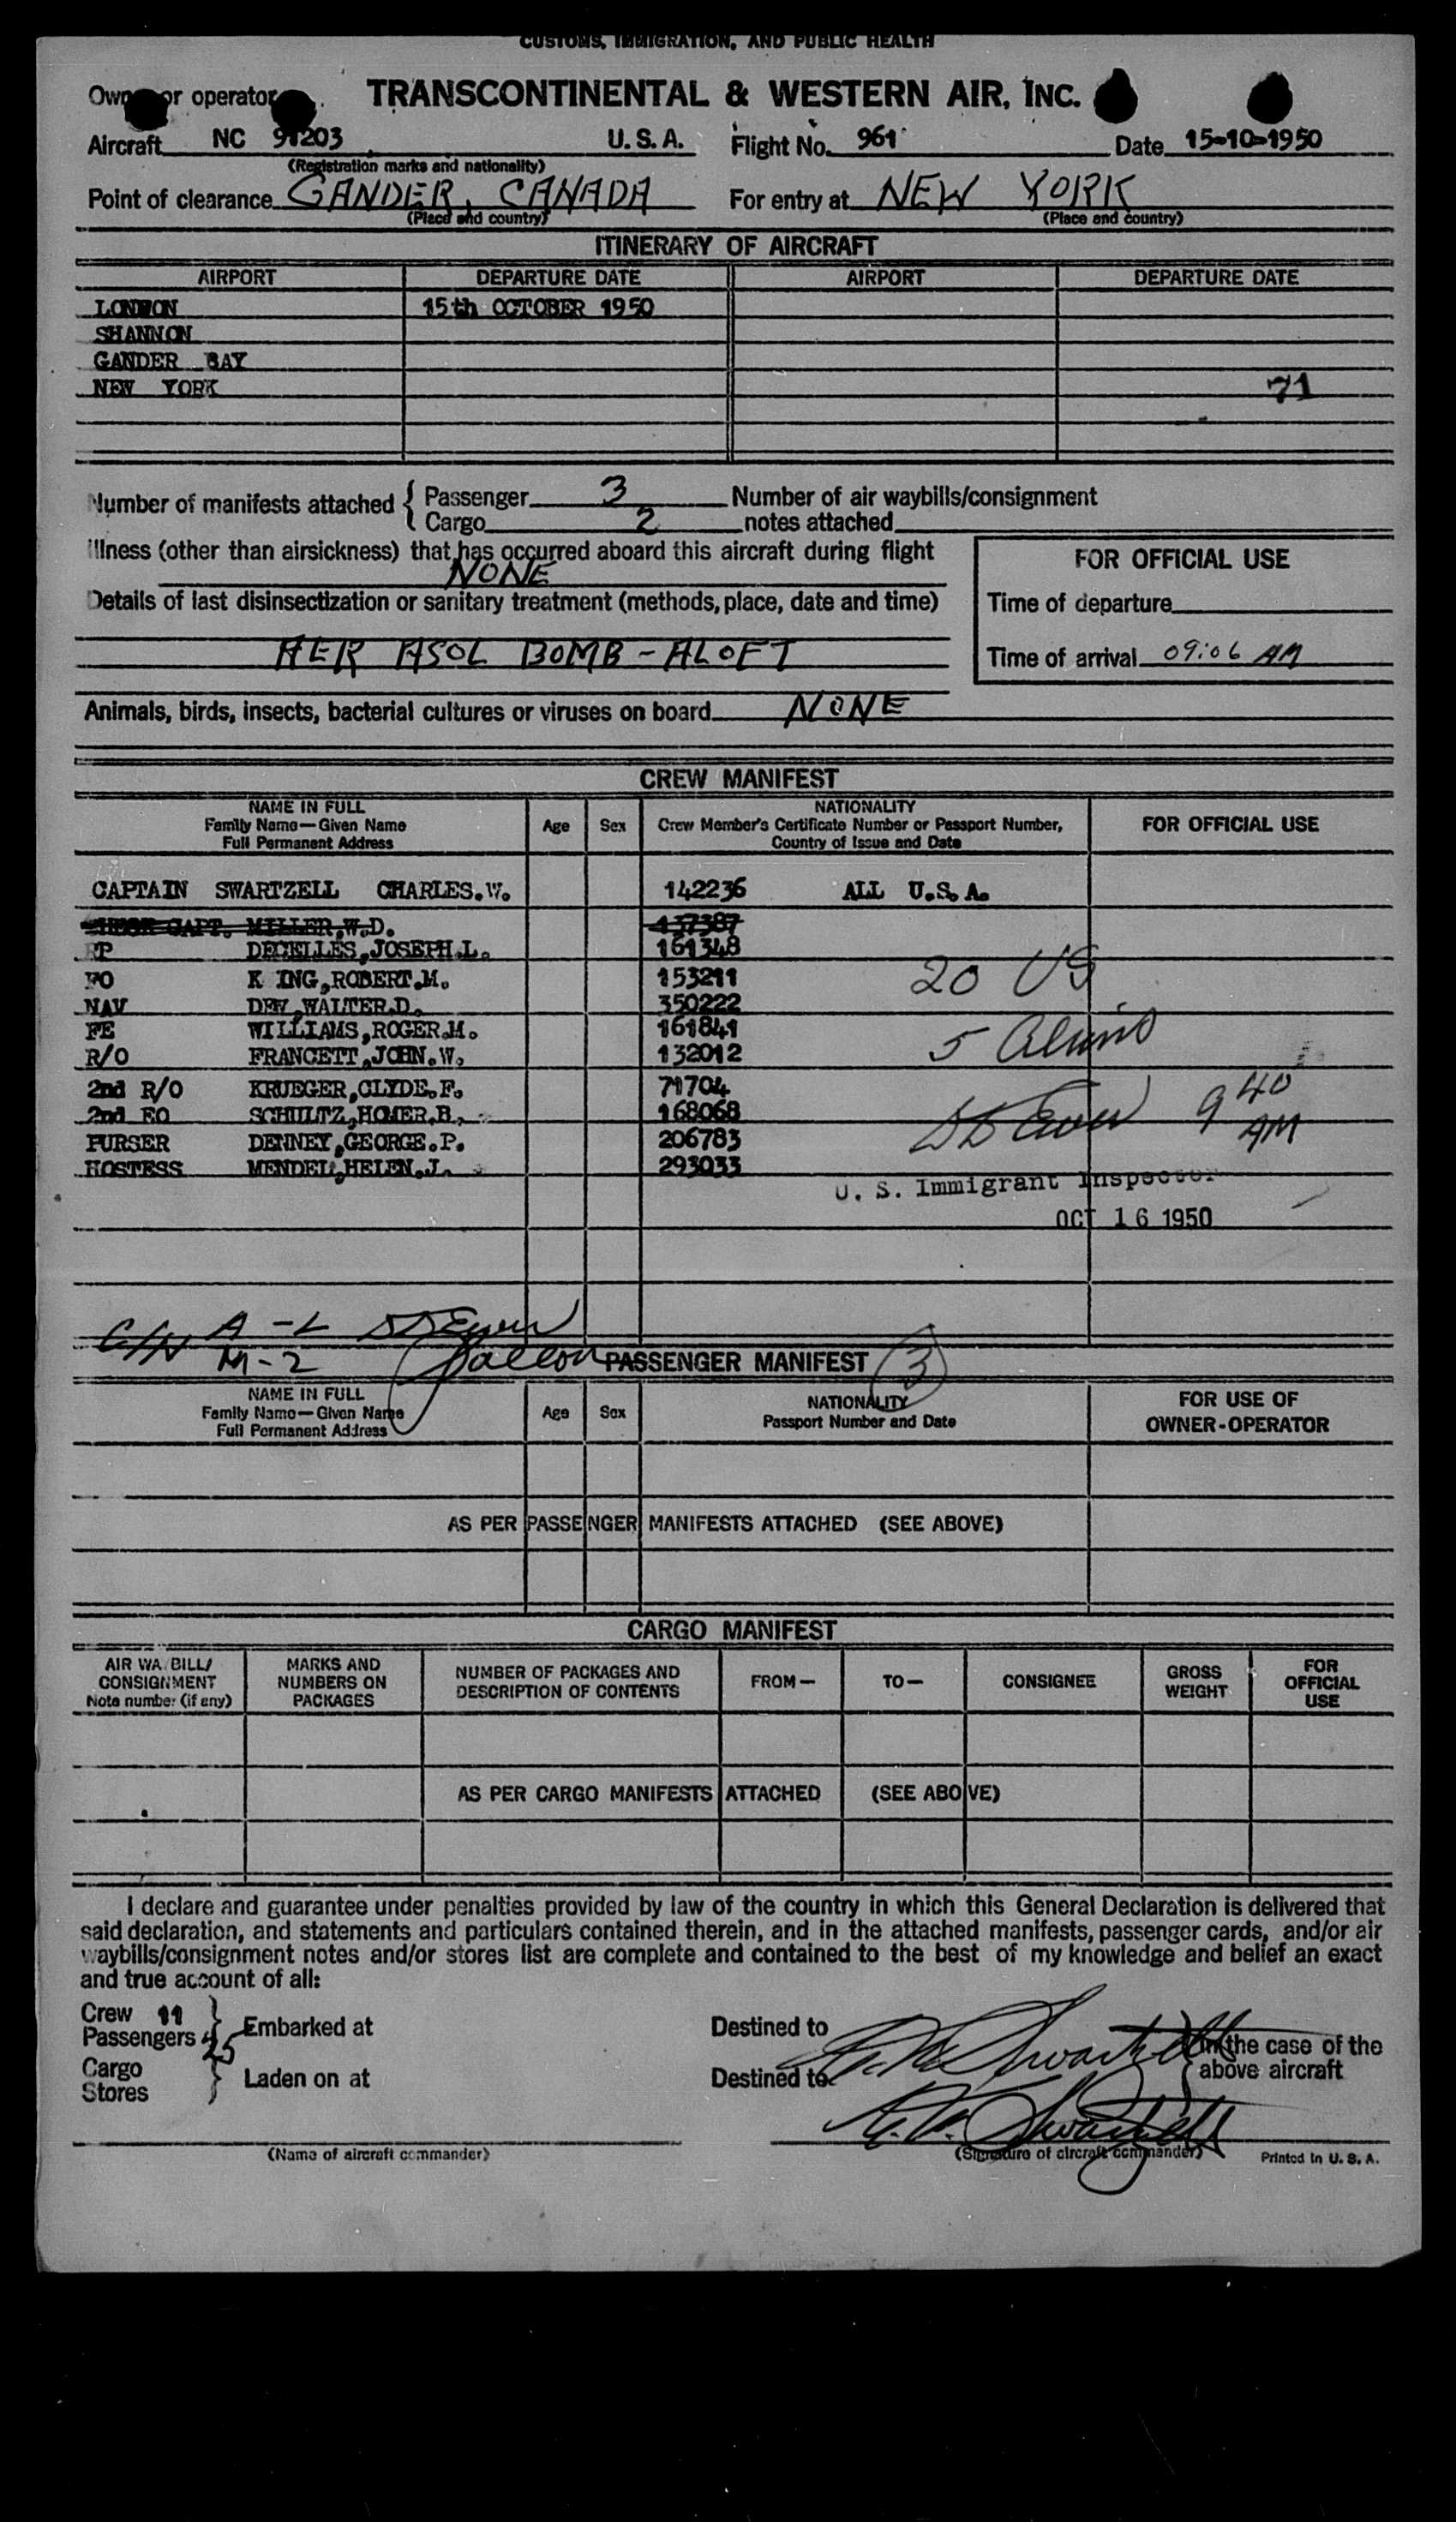 CUSTOMS, IMMIGRATION, AND PUBLIC HEALTH
Owner or operator. TRANSCONTINENTAL & WESTERN AIR, INC.
Aircraft NC 91203 U.S.A. Flight No. 961 Date 15-10-1950
(Registration marks and nationality)
Point of clearance GANDER, CANADA For entry at NEW YORK
(Place and country) (Place and country)
ITINERARY OF AIRCRAFT
AIRPORT DEPARTURE DATE AIRPORT DEPARTURE DATE
LONDON 15th OCTOBER 1950
SHANNON
GANDER BAY
NEW YORK 71
Number of manifests attached { Passenger 3 Number of air waybills/consignment
Cargo 2 notes attached
Illness (other than airsickness) that has occurred aboard this aircraft during flight
NONE
FOR OFFICIAL USE
Details of last disinsectization or sanitary treatment (methods, place, date and time)
Time of departure
AER ASOL BOMB - ALOFT
Time of arrival 09:06 AM
Animals, birds, insects, bacterial cultures or viruses on board NONE
CREW MANIFEST
NAME IN FULL
Family Name—Given Name
Full Permanent Address
Age Sex
NATIONALITY
Crew Member's Certificate Number or Passport Number,
Country of Issue and Date
FOR OFFICIAL USE
CAPTAIN SWARTZELL CHARLES.W. 142236 ALL U.S.A.
CAPT. MILLER,W.D. 137387
FP DECELLES,JOSEPH.L. 161348
FO K ING,ROBERT.M. 153211 20 US
NAV DEW,WALTER.D. 350222
FE WILLIAMS,ROGER.M. 161841
R/O FRANCETT,JOHN.W. 132012 5 Aliens
2nd R/O KRUEGER,CLYDE.F. 71704
2nd EO SCHULTZ,HOMER.B. 168068 9 40 AM
PURSER DENNEY,GEORGE.P. 206783
HOSTESS MENDEL,HELEN.J. 293033
U. S. Immigrant Inspector
OCT 16 1950
A - L
M - Z
PASSENGER MANIFEST 3
NAME IN FULL
Family Name—Given Name
Full Permanent Address
Age Sex
NATIONALITY
Passport Number and Date
FOR USE OF
OWNER-OPERATOR
AS PER PASSENGER MANIFESTS ATTACHED (SEE ABOVE)
CARGO MANIFEST
AIR WAYBILL/
CONSIGNMENT
Note number (if any)
MARKS AND
NUMBERS ON
PACKAGES
NUMBER OF PACKAGES AND
DESCRIPTION OF CONTENTS
FROM—
TO—
CONSIGNEE
GROSS
WEIGHT
FOR
OFFICIAL
USE
AS PER CARGO MANIFESTS ATTACHED (SEE ABOVE)
I declare and guarantee under penalties provided by law of the country in which this General Declaration is delivered that
said declaration, and statements and particulars contained therein, and in the attached manifests, passenger cards, and/or air
waybills/consignment notes and/or stores list are complete and contained to the best of my knowledge and belief an exact
and true account of all:
Crew 11
Passengers 25 } Embarked at Destined to
in the case of the
above aircraft
Cargo
Stores } Laden on at Destined to
C. W. Swartzell
C. W. Swartzell
(Name of aircraft commander) (Signature of aircraft commander) Printed in U. S. A.